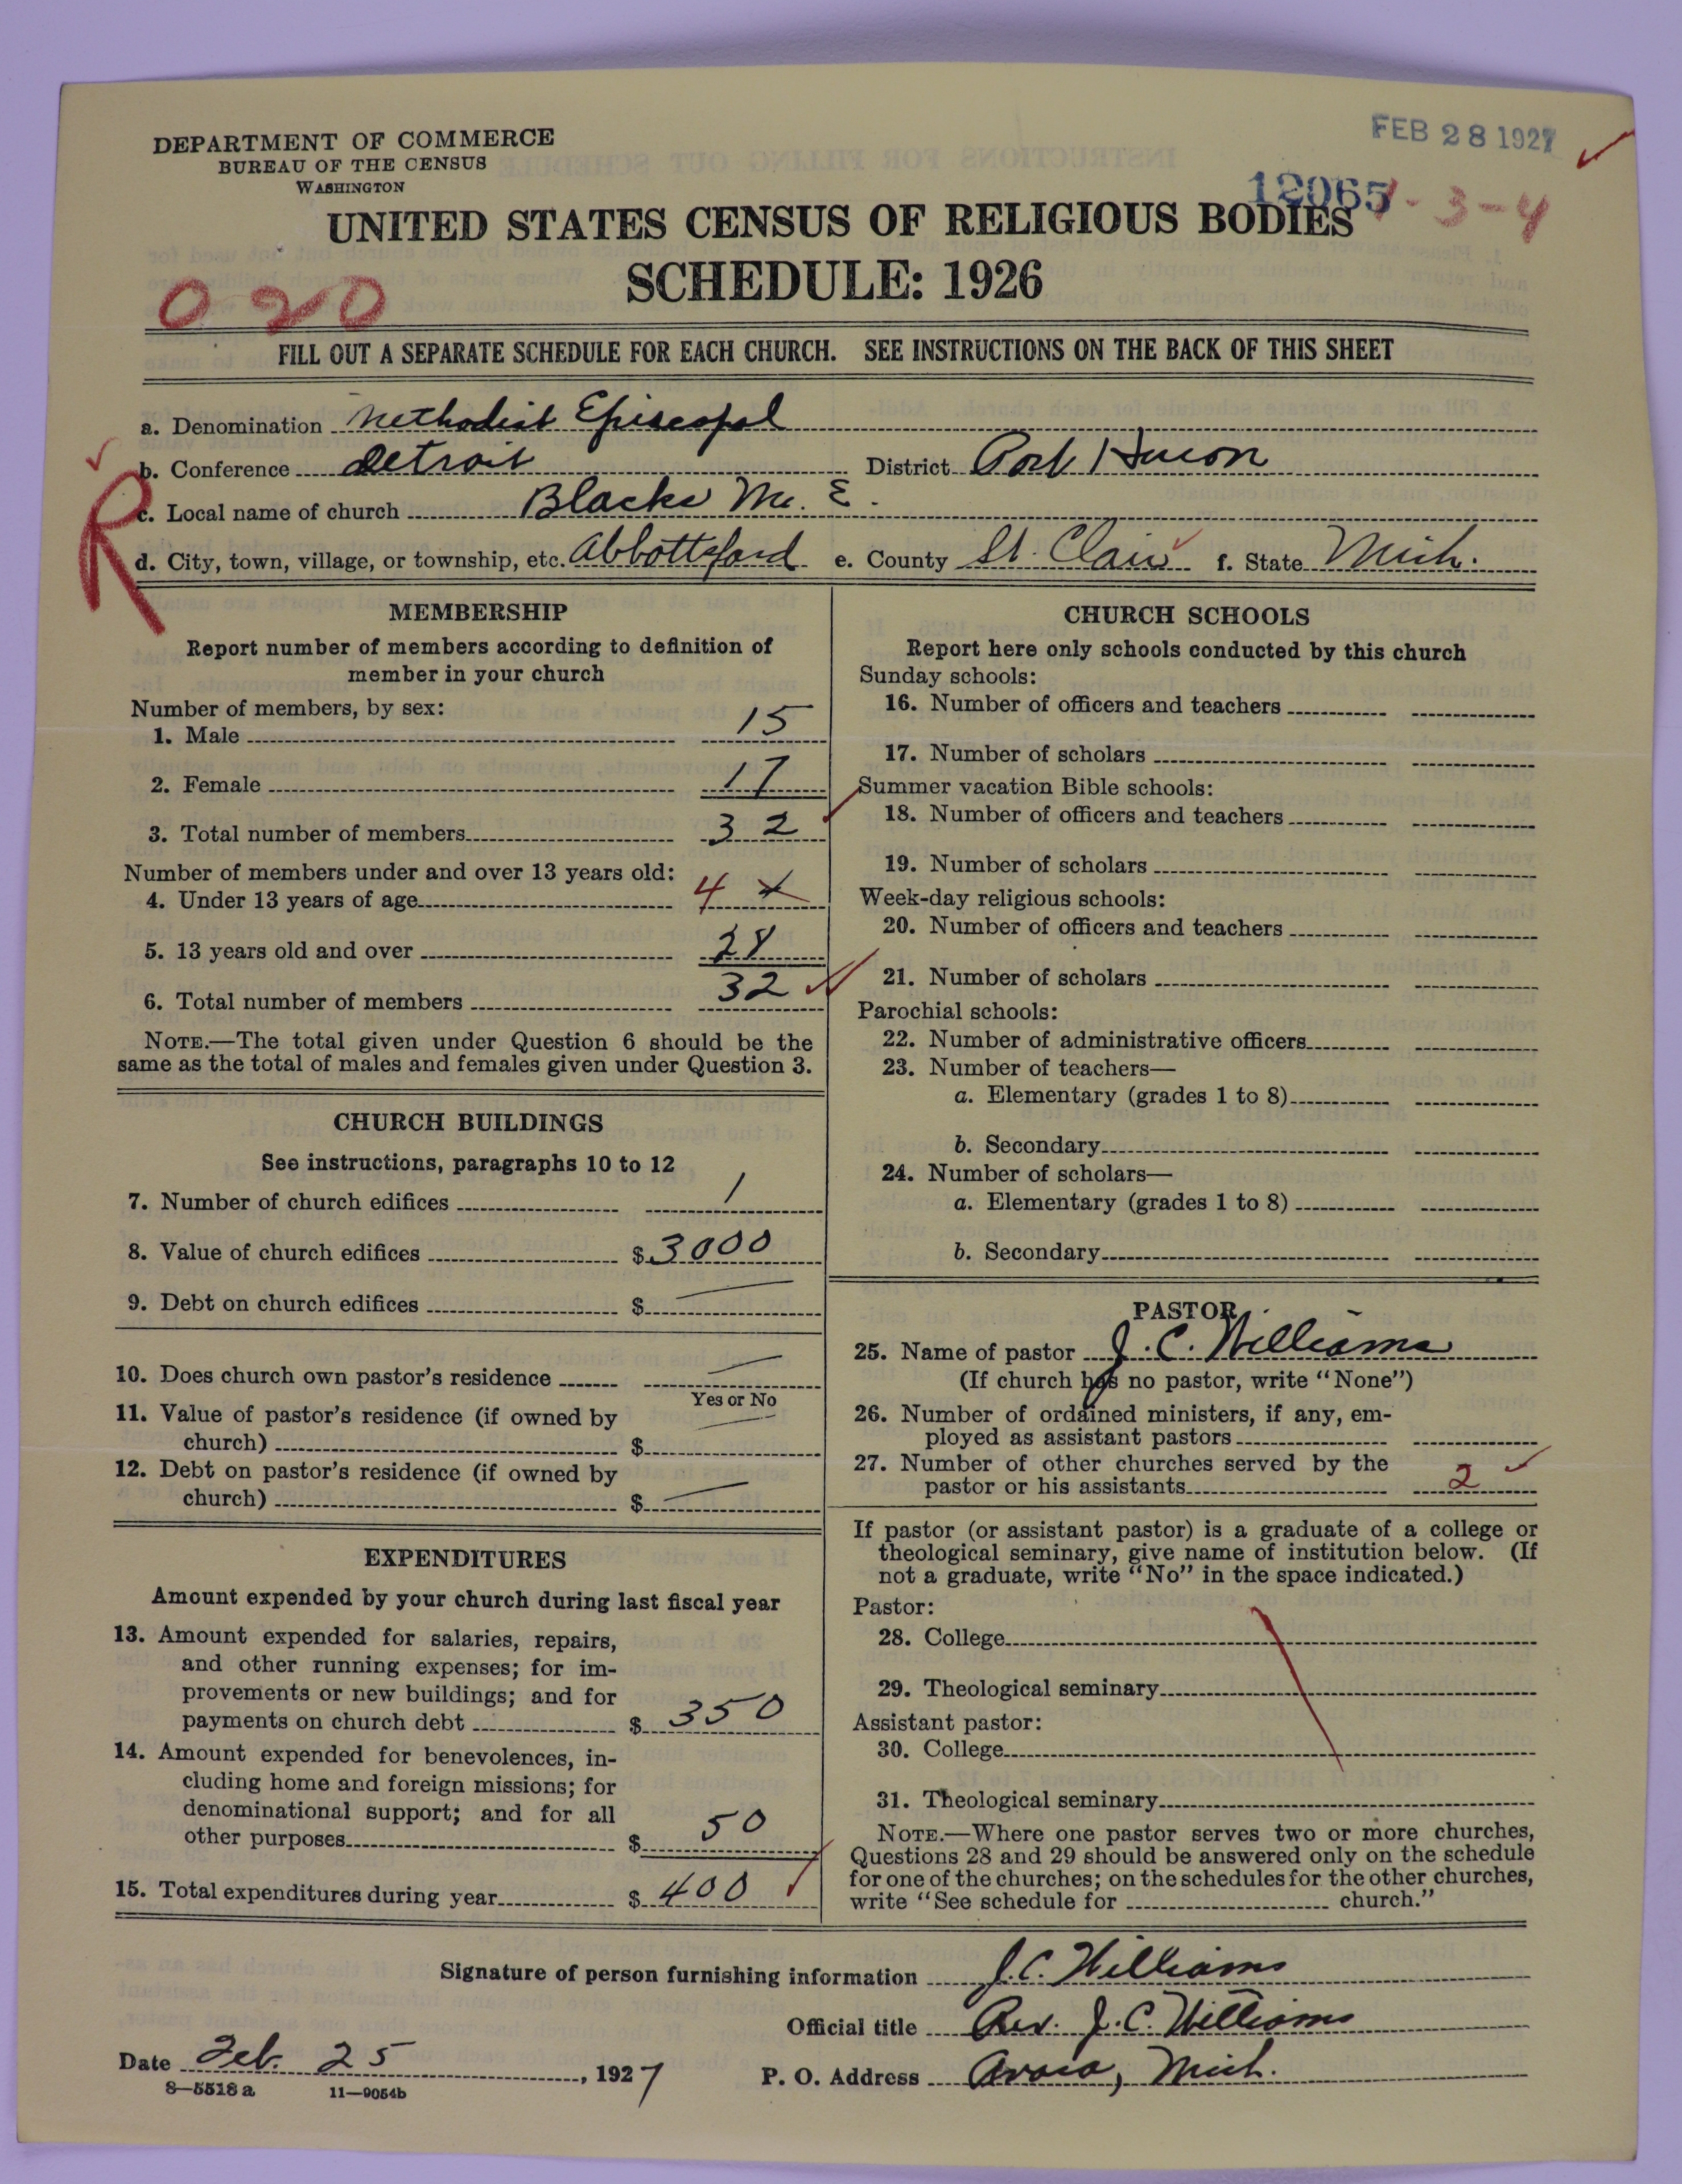 DEPARTMENT OF COMMERCE
BUREAU OF THE CENSUS
WASHINGTON
FEB 28 1927
12065
1-3-4
UNITED STATES CENSUS OF RELIGIOUS BODIES
SCHEDULE: 1926
020
FILL OUT A SEPARATE SCHEDULE FOR EACH CHURCH. SEE INSTRUCTIONS ON THE BACK OF THIS SHEET
a. Denomination Methodist Episcopal
b. Conference Detroit District Port Huron
R
c. Local name of church Blacks M. E.
d. City, town, village, or township, etc. Abbottsford e. County St. Clair f. State Mich.
MEMBERSHIP
Report number of members according to definition of
member in your church
Number of members, by sex:
1. Male 15
2. Female 17
3. Total number of members 32
Number of members under and over 13 years old:
4. Under 13 years of age 4
5. 13 years old and over 28
6. Total number of members 32
NOTE.—The total given under Question 6 should be the
same as the total of males and females given under Question 3.
CHURCH BUILDINGS
See instructions, paragraphs 10 to 12
7. Number of church edifices 1
8. Value of church edifices $ 3000
9. Debt on church edifices $ —
10. Does church own pastor's residence —
Yes or No
11. Value of pastor's residence (if owned by
church) $ —
12. Debt on pastor's residence (if owned by
church) $ —
EXPENDITURES
Amount expended by your church during last fiscal year
13. Amount expended for salaries, repairs,
and other running expenses; for im-
provements or new buildings; and for
payments on church debt $ 350
14. Amount expended for benevolences, in-
cluding home and foreign missions; for
denominational support; and for all
other purposes $ 50
15. Total expenditures during year $ 400
CHURCH SCHOOLS
Report here only schools conducted by this church
Sunday schools:
16. Number of officers and teachers
17. Number of scholars
Summer vacation Bible schools:
18. Number of officers and teachers
19. Number of scholars
Week-day religious schools:
20. Number of officers and teachers
21. Number of scholars
Parochial schools:
22. Number of administrative officers
23. Number of teachers—
a. Elementary (grades 1 to 8)
b. Secondary
24. Number of scholars—
a. Elementary (grades 1 to 8)
b. Secondary
PASTOR
25. Name of pastor J. C. Williams
(If church has no pastor, write "None")
26. Number of ordained ministers, if any, em-
ployed as assistant pastors
27. Number of other churches served by the
pastor or his assistants 2
If pastor (or assistant pastor) is a graduate of a college or
theological seminary, give name of institution below. (If
not a graduate, write "No" in the space indicated.)
Pastor:
28. College
29. Theological seminary
Assistant pastor:
30. College
31. Theological seminary
NOTE.—Where one pastor serves two or more churches,
Questions 28 and 29 should be answered only on the schedule
for one of the churches; on the schedules for the other churches,
write "See schedule for church."
Signature of person furnishing information J. C. Williams
Official title Rev. J. C. Williams
Date Feb. 25, 1927 P. O. Address Avoca, Mich.
8—5518 a 11—9054b